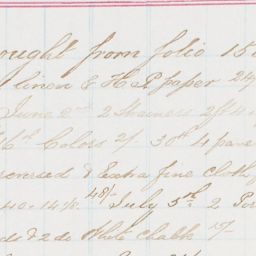 ought from folio 15
linen & H.P. paper 24/
June 2nd 2 Strainers 2ft 4
6th Colors 2/. 30th 4 pane
reversed & extra fine cloth
40. 14/8. 48/- July 5th. 2 Por
ds & 2 do White chalk 15/-